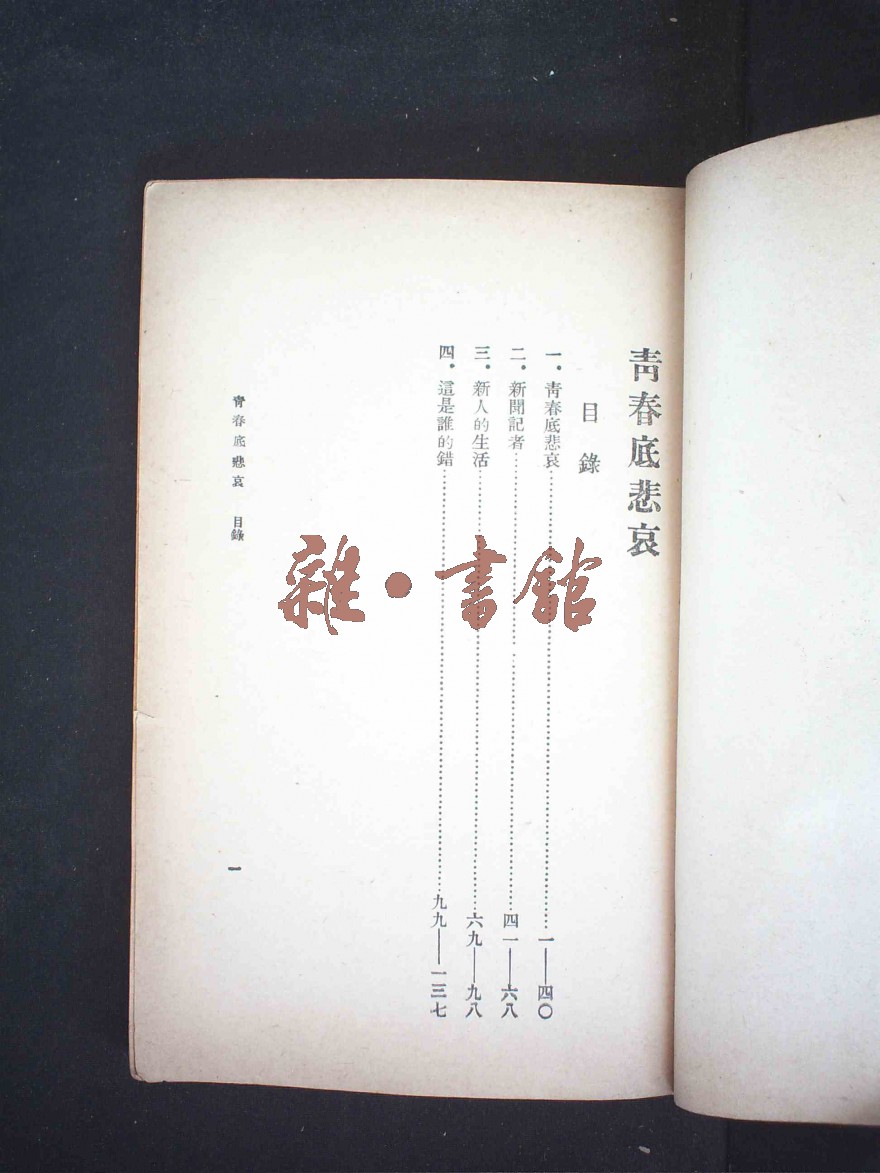 青春底悲哀
目錄
一．青春底悲哀⋯⋯⋯⋯⋯⋯⋯⋯⋯⋯一——四〇
二．新聞記者⋯⋯⋯⋯⋯⋯⋯⋯⋯⋯四一——六八
三．新人的生活⋯⋯⋯⋯⋯⋯⋯⋯⋯⋯六九——九八
四．這是誰的錯⋯⋯⋯⋯⋯⋯⋯⋯⋯⋯九九——一三七
青春底悲哀 目錄
一
雜·書館